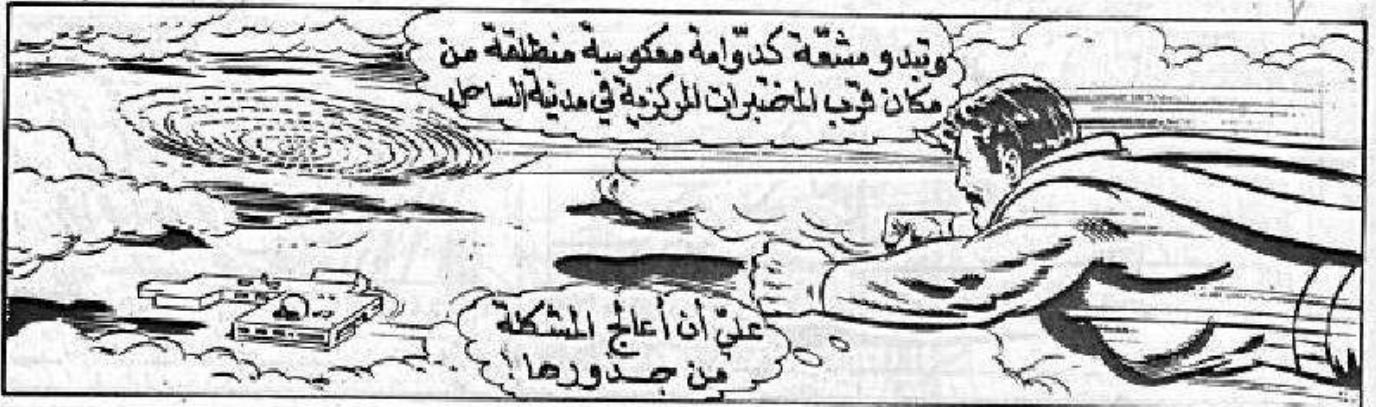 وتبدو مشعّة كدوّامة معكوسة منطلقة من
مكان قرب المختبرات المركزية في مدينة الساحل.
عليّ أن أعالج المشكلة
من جذورها!